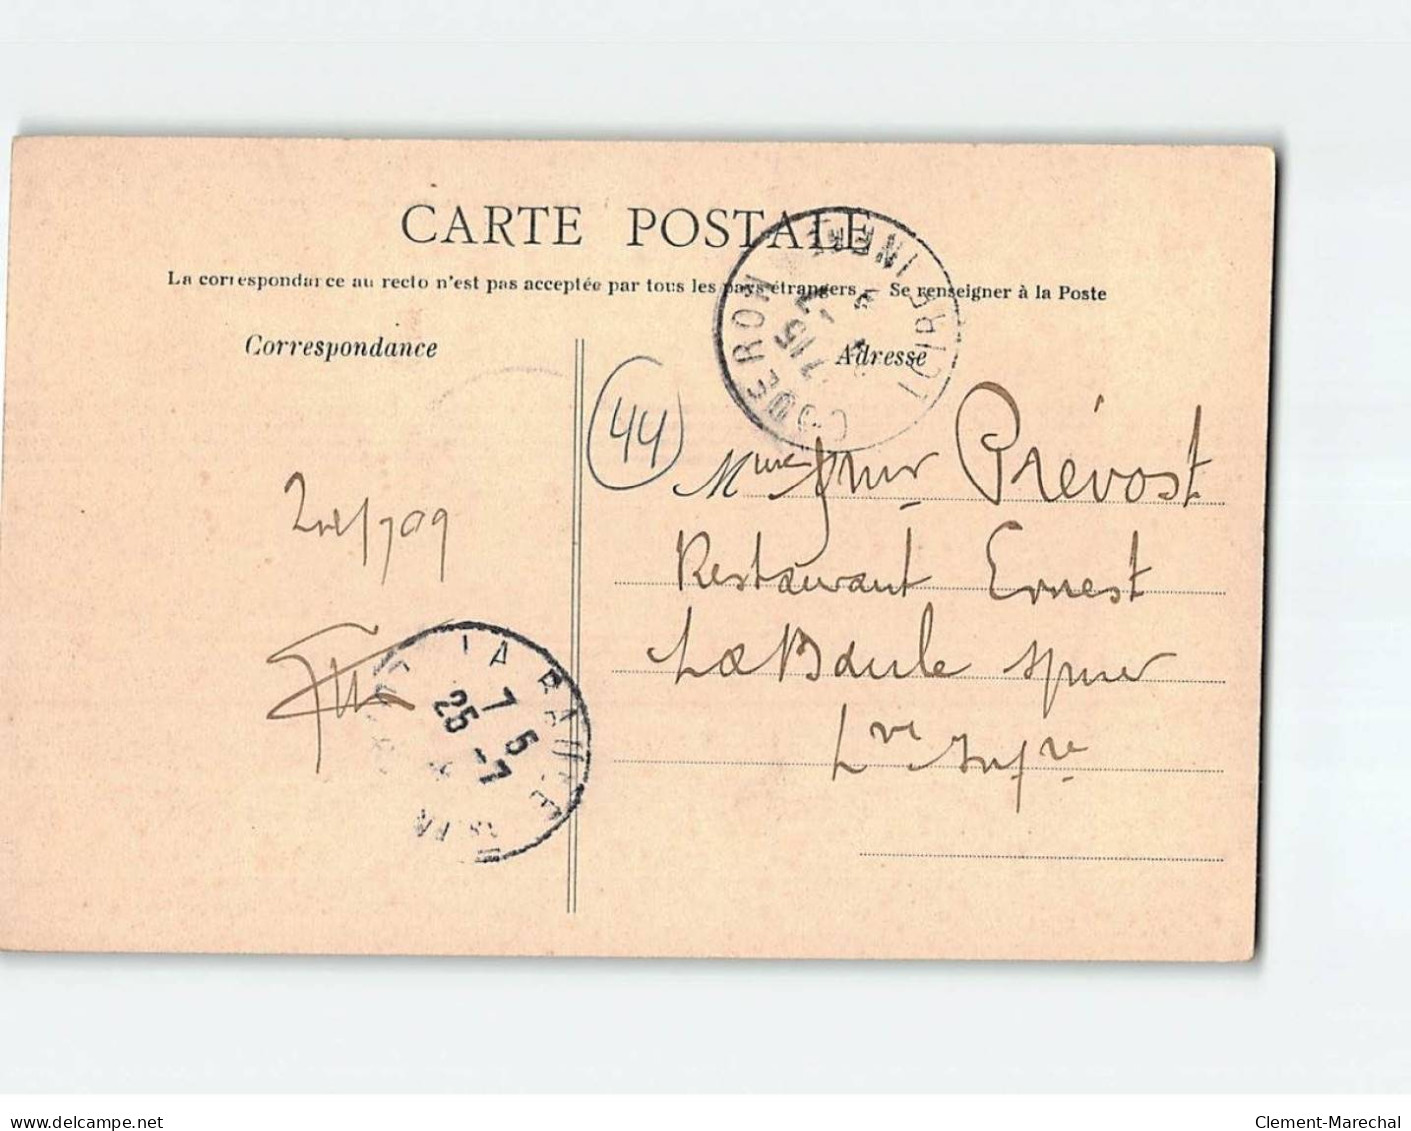 CARTE POSTALE
La correspondance au recto n'est pas acceptée par tous les pays étrangers - Se renseigner à la Poste
Correspondance
Adresse
COUERON
LOIRE INFRE
44
Prévost
Restaurant Ernest
La Baule
Lre Infre
LA BAULE
7 5
25 -7
www.delcampe.net
Clement-Marechal